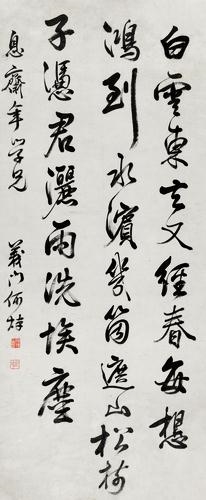 白雲東去又經春每想
鴻到水濱幾箇遮山松樹
子憑君灑雨洗埃塵
息齋年學兄
義門何焯